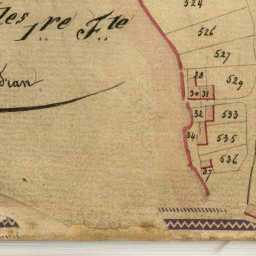 les 1re Fle
524
526
527
28
529
30 31
32
533
34
535
536
37